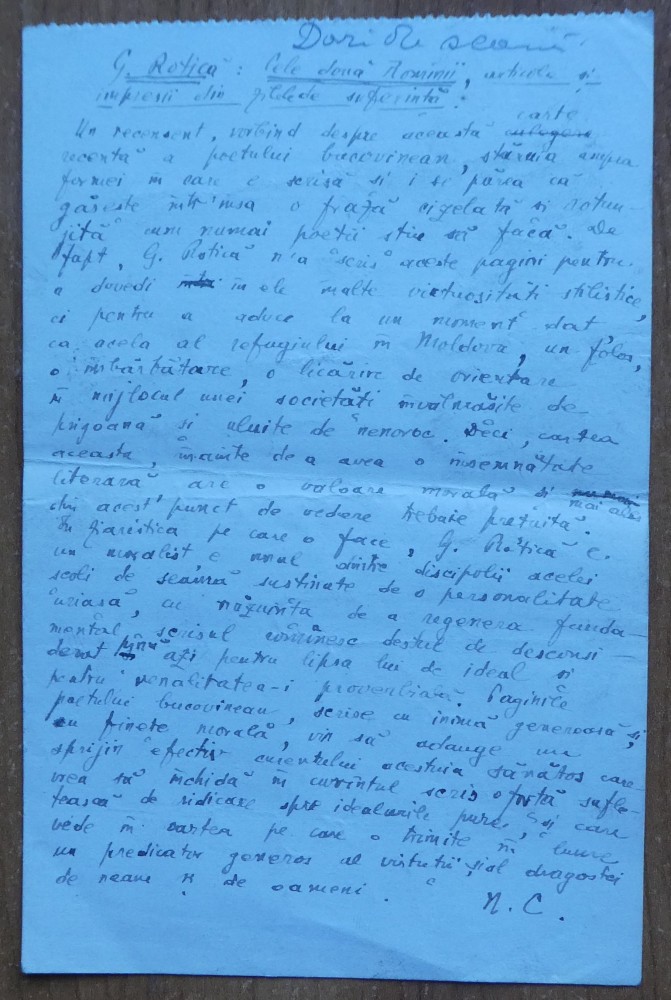 Dări de seamă
G. Rotică: Cele două Românii, articole și
impresii din zilele de suferință.
Un recensent, vorbind despre această culegere carte
recentă a poetului bucovinean, stăruia asupra
formei în care e scrisă și i se părea că
găsește într'însa o frază cizelată și rotun-
jită cum numai poeții știu să facă. De
fapt, G. Rotică n'a scris aceste pagini pentru
a dovedi în ele înalte virtuozități stilistice,
ci pentru a aduce la un moment dat
ca acela al refugiului în Moldova, un folos,
o îmbărbătare, o licărire de orientare
în mijlocul unei societăți învălmășite de
prigoană și uluite de nenoroc. Deci, cartea
aceasta, înainte de a avea o însemnătate
literară are o valoare morală și numai mai ales
din acest punct de vedere trebuie prețuită.
În ziaristica pe care o face, G. Rotică e
un moralist e unul dintre discipolii acelei
școli de seamă susținute de o personalitate
uriașă, cu năzuința de a regenera funda-
mental scrisul românesc destul de desconsi-
derat până azi pentru lipsa lui de ideal și
pentru venalitatea-i proverbială. Paginile
poetului bucovinean, scrise cu inimă generoasă și
cu finețe morală, vin să adauge un
sprijin efectiv curentului acestuia sănătos care
vrea să închidă în cuvîntul scris o forță sufle-
tească de ridicare spre idealurile pure, și care
vede în cartea pe care o trimite în lume
un predicator generos al virtuții și al dragostei
de neam și de oameni.
N. C.